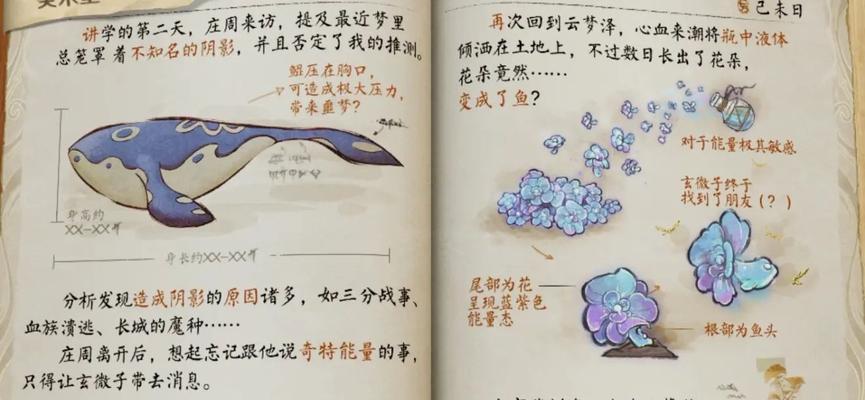 讲学的第二天，庄周来访，提及最近梦里
总笼罩着不知名的阴影，并且否定了我的推测。
鲲压在胸口，
可造成极大压力，
带来噩梦？
身高约
XX-XX
身长约XX-XX
分析发现造成阴影的原因诸多，如三分战事、
血族溃逃、长城的魔种……
庄周离开后，想起忘记跟他说奇特能量的事，
只得让玄微子带去消息。
己未日
再次回到云梦泽，心血来潮将瓶中液体
倾洒在土地上，不过数日长出了花朵，
花朵竟然……
变成了鱼？
对于能量极其敏感
玄微子终于
找到了朋友（？）
尾部为花
呈现蓝紫色
能量态
根部为鱼头